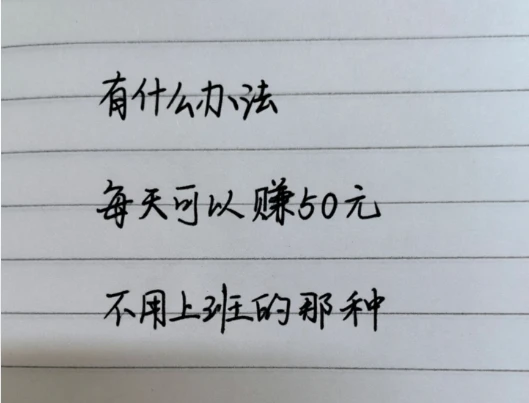 有什么办法
每天可以赚50元
不用上班的那种